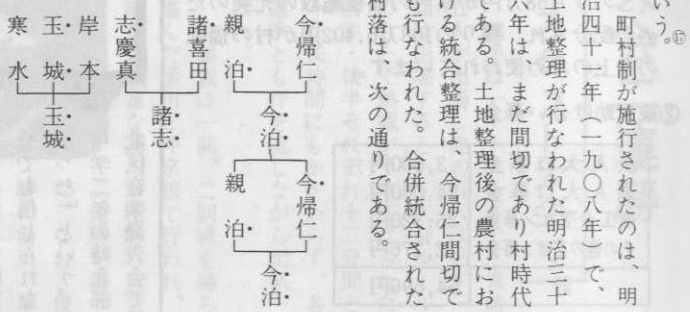 いう。⑰
町村制が施行されたのは、明
治四十一年（一九〇八年）で、
土地整理が行なわれた明治三十
六年は、まだ間切であり村時代
である。土地整理後の農村にお
ける統合整理は、今帰仁間切で
も行なわれた。合併統合された
村落は、次の通りである。
今帰仁
親泊
今泊
今帰仁
親泊
今泊
諸喜田
志慶真
諸志
岸本
玉城
寒水
玉城